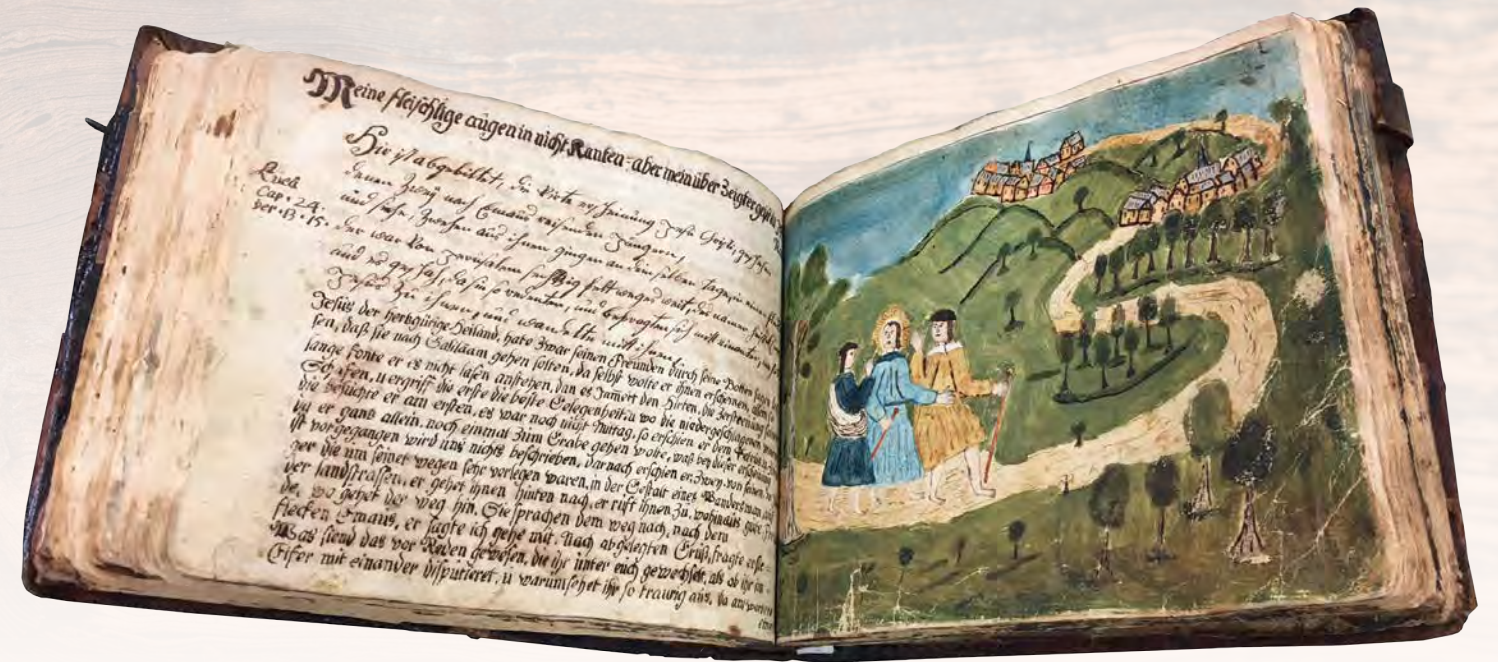 Meine fleischlige augen in nicht Kanten: aber mein über Zeigter
Hie ist abgebildet, die Virte erscheinung Jesu Christi, geschehen
denen Zweÿ nach Emaus reisenden Jüngeren,
Lucä
Cap. 24.
ver. 13. 15.
und sehe, Zween aus ihnen gingen an dem selben Tage, in einen
der war Von Jerusalem sechtzig feltwegs weit, des namen
und es geschah, da sie so redenten, und befragten sich mit einander,
Jesus Zu ihnen, und wandelte mit ihnen.
Jesus der hertzgürige Heiland, hate Zwar seinen Freunden durch seine Botten sagen
sen, daß sie nach Galiläam gehen solten, da selbst wolte er ihnen erscheinen, allein
lange konte er es nicht lasen anstehen, dan es Jamert den Hirten, die Zerstreuung seiner
Schafen, u ergriff die erste die beste Gelegenheit, u wo die niedergeschlagenen
die besuchte er am ersten, es war noch nicht Mittag, so erschien er dem Petrus,
da er gans allein, noch einmal Zum Grabe gehen wolte, waß bey dieser erscheinung
ist vorgegangen wird uns nichts beschrieben, darnach erschien er Zwey von seinen
ger die um seinet wegen sehr verlegen waren, in der Gestalt eines Wandersman, auf
der landstrassen, er gehet ihnen hinten nach, er rüft ihnen Zu, wohinaus gute
de, wo gehet der weg hin. Sie sprachen dem weg nach, nach dem
flecken Emaus, er sagte ich gehe mit. Nach abgelegten Gruß, fragte er sie
Was siend das vor Reden gewesen, die ihr unter euch gewechselt, als ob ihr im
Eifer mit einander disputieret, u warum sehet ihr so traurig aus, da antwortete